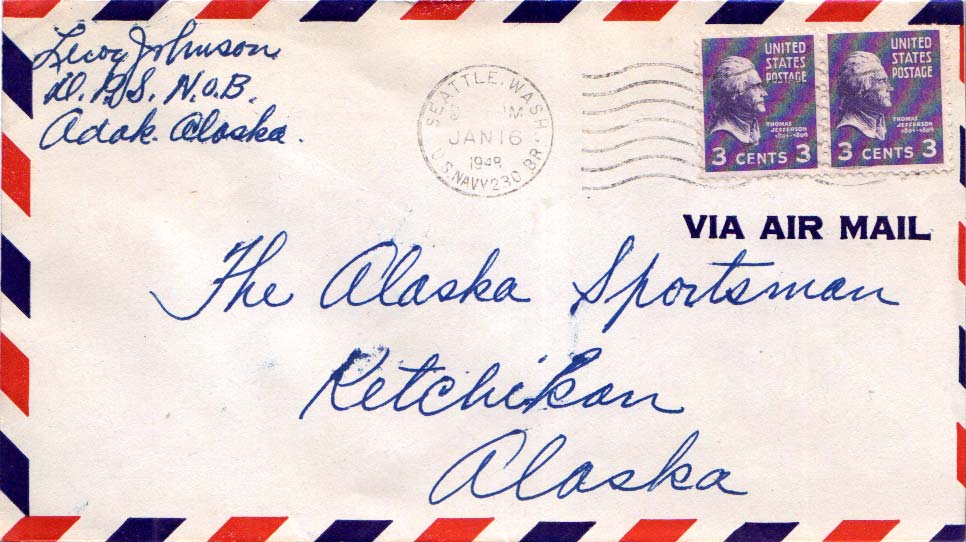 Leroy Johnson
D.P.S. N.O.B.
Adak. Alaska.
SEATTLE, WASH.
M
JAN 16
1948
U.S. NAVY 230 BR.
UNITED
STATES
POSTAGE
THOMAS
JEFFERSON
1801-1809
3 CENTS 3
UNITED
STATES
POSTAGE
THOMAS
JEFFERSON
1801-1809
3 CENTS 3
VIA AIR MAIL
The Alaska Sportsman
Ketchikan
Alaska